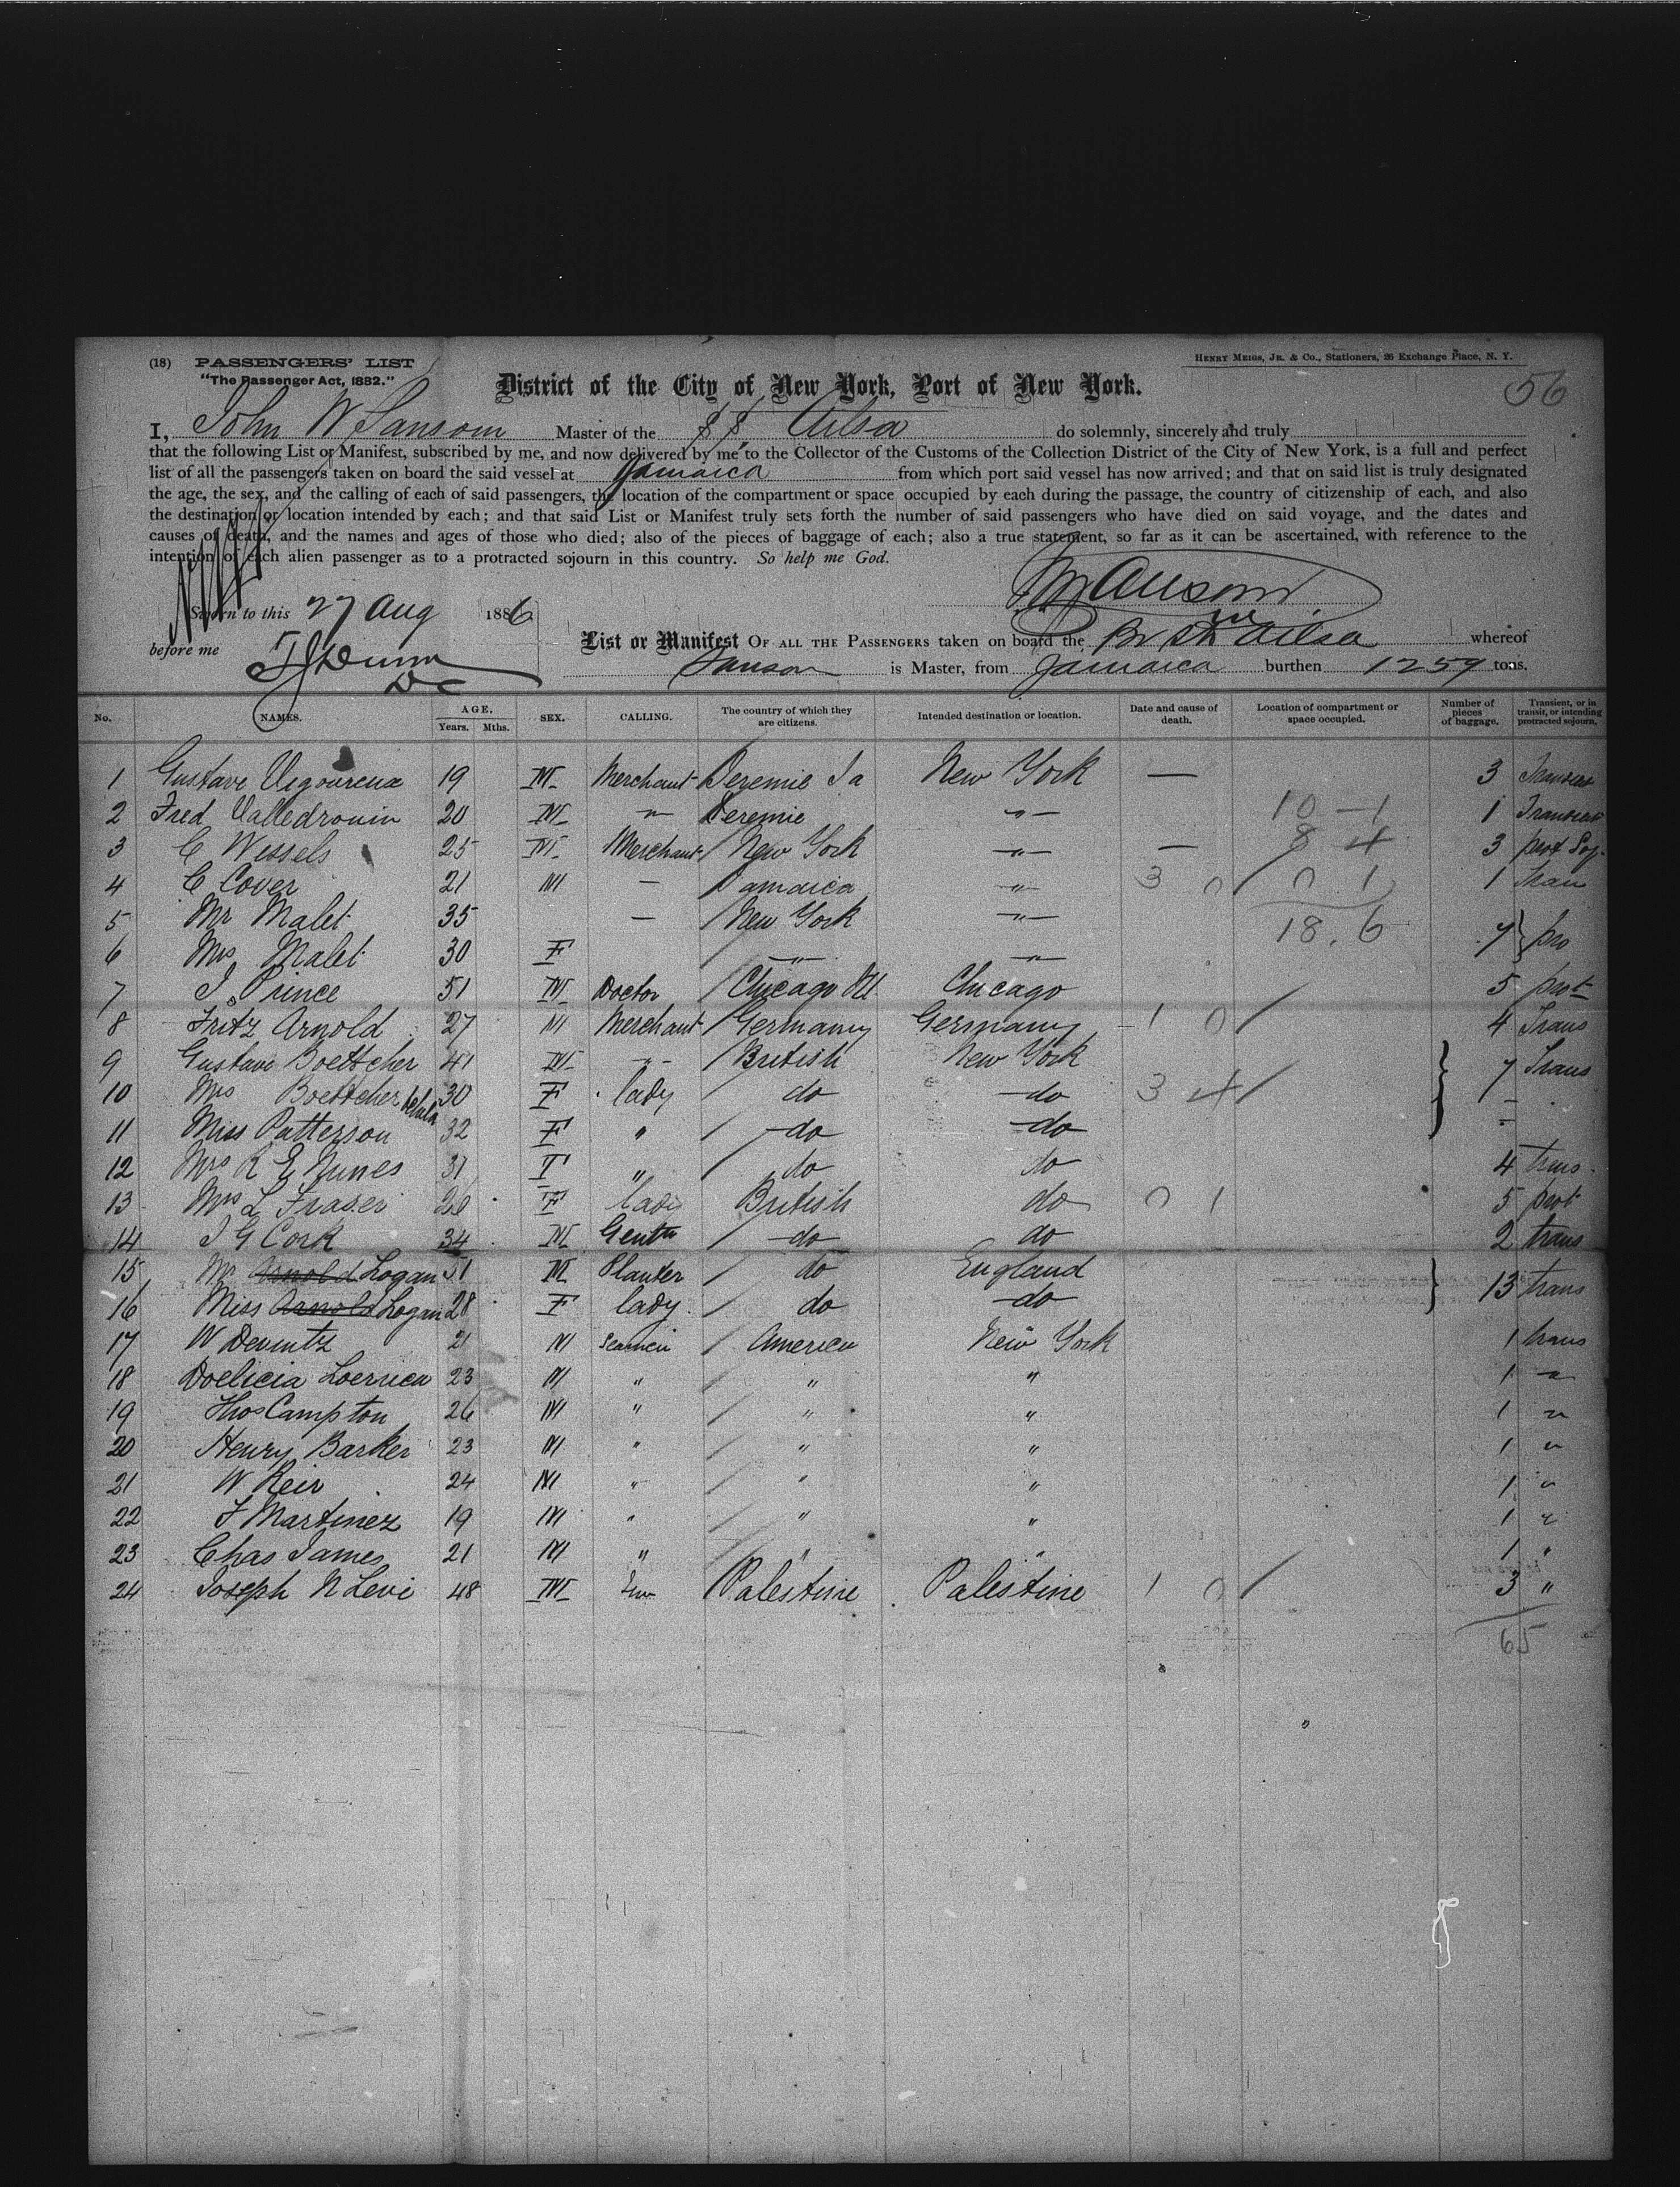 (18) PASSENGERS' LIST
HENRY MEIGS, JR. & CO., Stationers, 26 Exchange Place, N. Y.
"The Passenger Act, 1882."
District of the City of New York, Port of New York.
56
I, John W Sansom Master of the SS Ailsa do solemnly, sincerely and truly
that the following List or Manifest, subscribed by me, and now delivered by me to the Collector of the Customs of the Collection District of the City of New York, is a full and perfect
list of all the passengers taken on board the said vessel at Jamaica from which port said vessel has now arrived; and that on said list is truly designated
the age, the sex, and the calling of each of said passengers, the location of the compartment or space occupied by each during the passage, the country of citizenship of each, and also
the destination or location intended by each; and that said List or Manifest truly sets forth the number of said passengers who have died on said voyage, and the dates and
causes of death, and the names and ages of those who died; also of the pieces of baggage of each; also a true statement, so far as it can be ascertained, with reference to the
intention of each alien passenger as to a protracted sojourn in this country. So help me God.
Sworn to this 27 Aug 1886
before me
List or Manifest OF ALL THE PASSENGERS taken on board the Br Str Ailsa whereof
Sansom is Master, from Jamaica burthen 1259 tons.
No. NAMES. AGE. Years. Mths. SEX. CALLING. The country of which they are citizens. Intended destination or location. Date and cause of death. Location of compartment or space occupied. Number of pieces of baggage. Transient, or in transit, or intending protracted sojourn.
1 Gustave 19 M Merchant Jeremie New York — 3 Transient
2 Fred 20 M " Jeremie " 10 - 1 1 Transient
3 C Wessels 25 M Merchant New York " — 8 4 3 prot Soj.
4 C Cover 21 M — Jamaica " 3 0 / 0 1 1 Tran
5 Mr Malet 35 — New York " 18. 6
6 Mrs Malet 30 F " " 7 pro
7 J Prince 51 M Doctor Chicago Ill Chicago 5 prot
8 Fritz Arnold 27 M Merchant Germany Germany 1 0 / 4 Trans
9 Gustave Boettcher 41 M " British New York 7 Trans
10 Mrs Boettcher 30 F lady do do 3 4 / -
11 Miss Patterson 32 F " do do -
12 Mrs R E Nunes 31 F " do do 4 trans
13 Mrs L Fraser F lady British do 0 1 5 prot
14 J G Cork 34 M Gentn do do 2 trans
15 Mr Arnold Logan 51 M Planter do England
16 Miss Arnold Logan 28 F lady do do 13 trans
17 W 21 M Seamen America New York 1 trans
18 23 M " " " 1 "
19 Thos Campton 26 M " " " 1 "
20 Henry Barker 23 M " " " 1 "
21 W Reir 24 M " " " 1 "
22 F Martinez 19 M " " " 1 "
23 Chas James 21 M " " " 1 "
24 Joseph N Levi 48 M Palestine Palestine 1 0 / 3 "
65